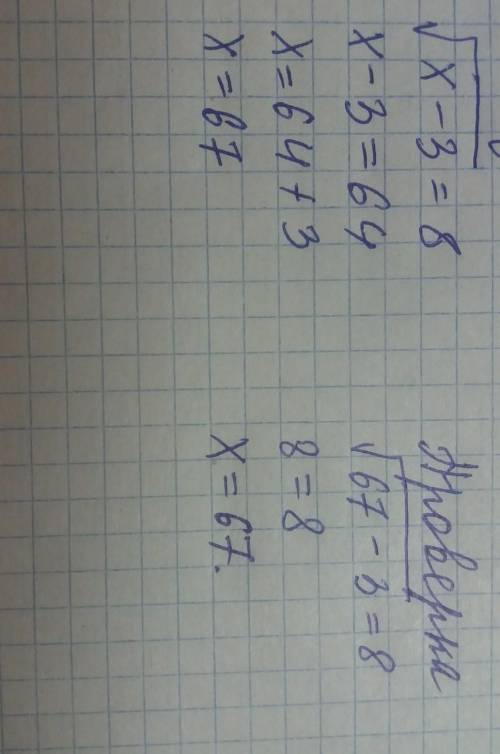 √x-3 = 8
x-3 = 64
x = 64+3
x = 67
Проверка
√67-3 = 8
8 = 8
x = 67.